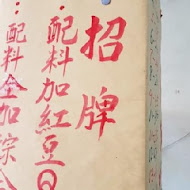 招牌
：配料加紅豆Q
：配料全加綜